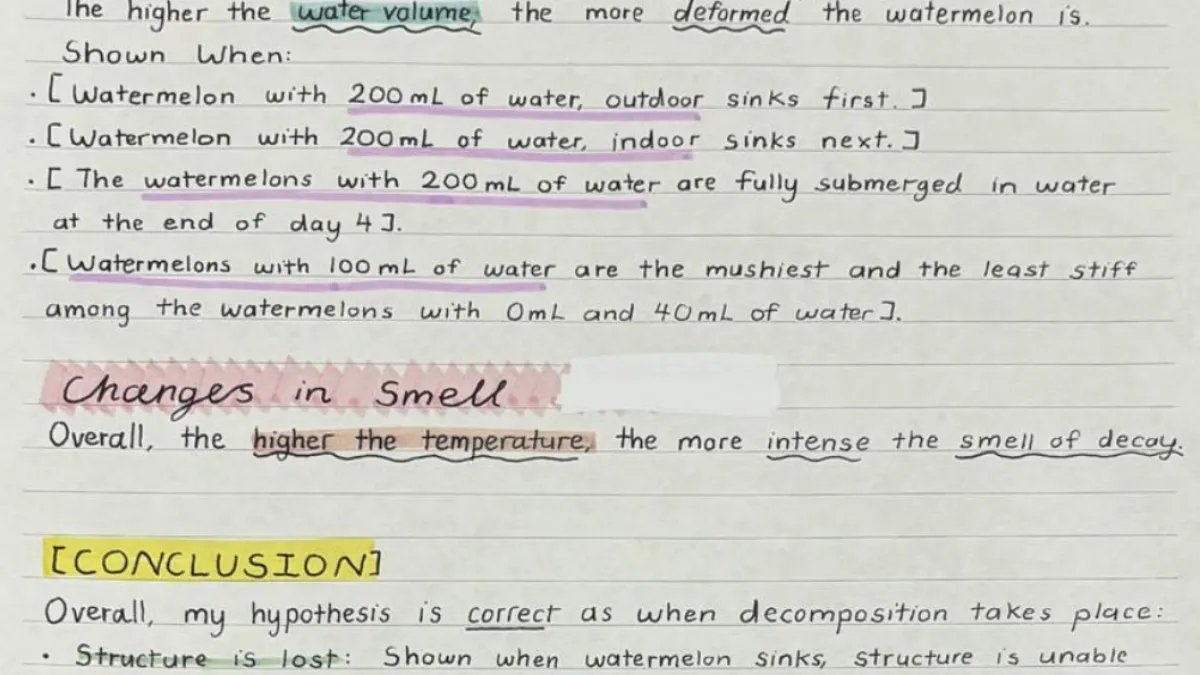 The higher the water volume, the more deformed the watermelon is.
Shown When:
· [Watermelon with 200mL of water, outdoor sinks first.]
· [Watermelon with 200mL of water, indoor sinks next.]
· [The watermelons with 200mL of water are fully submerged in water
at the end of day 4].
· [Watermelons with 100mL of water are the mushiest and the least stiff
among the watermelons with 0mL and 40mL of water].
Changes in Smell
Overall, the higher the temperature, the more intense the smell of decay.
[CONCLUSION]
Overall, my hypothesis is correct as when decomposition takes place:
· Structure is lost: Shown when watermelon sinks, structure is unable